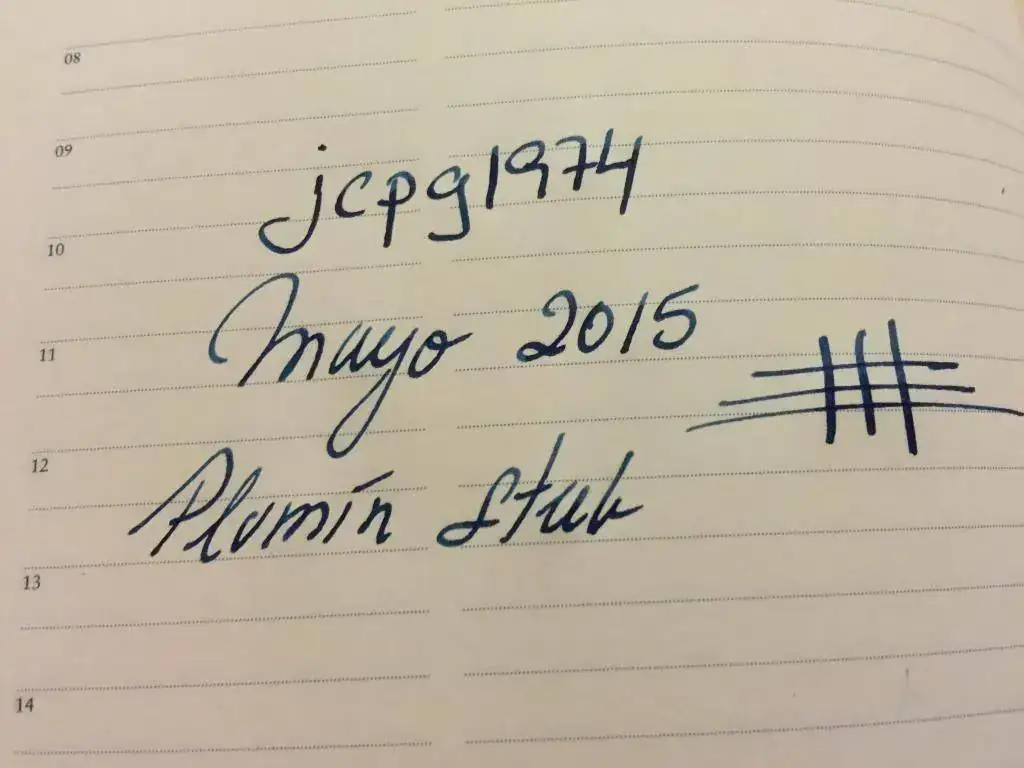 08
09
jcpg1974
10
Mayo 2015
11
12
Plumín Stub
13
14